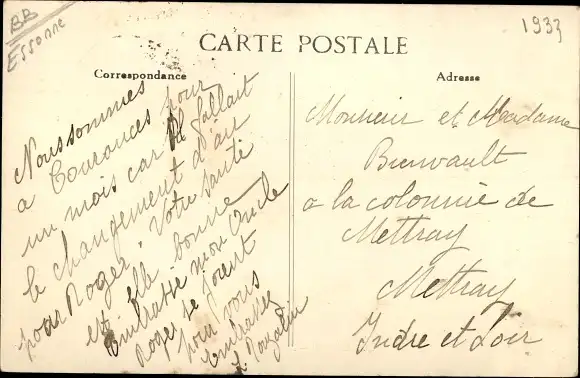 BB
Essonne
1933
CARTE POSTALE
Correspondance
Adresse
Nous sommes
a Courances pour
un mois car il fallait
le changement d'air
pour Roger, Votre santé
est elle bonne
Embrasse mon Oncle
Roger se joint
pour vous
embrasser
Monsieur et Madame
Bienvault
a la colonnie de
Mettray
Mettray
Indre et Loir